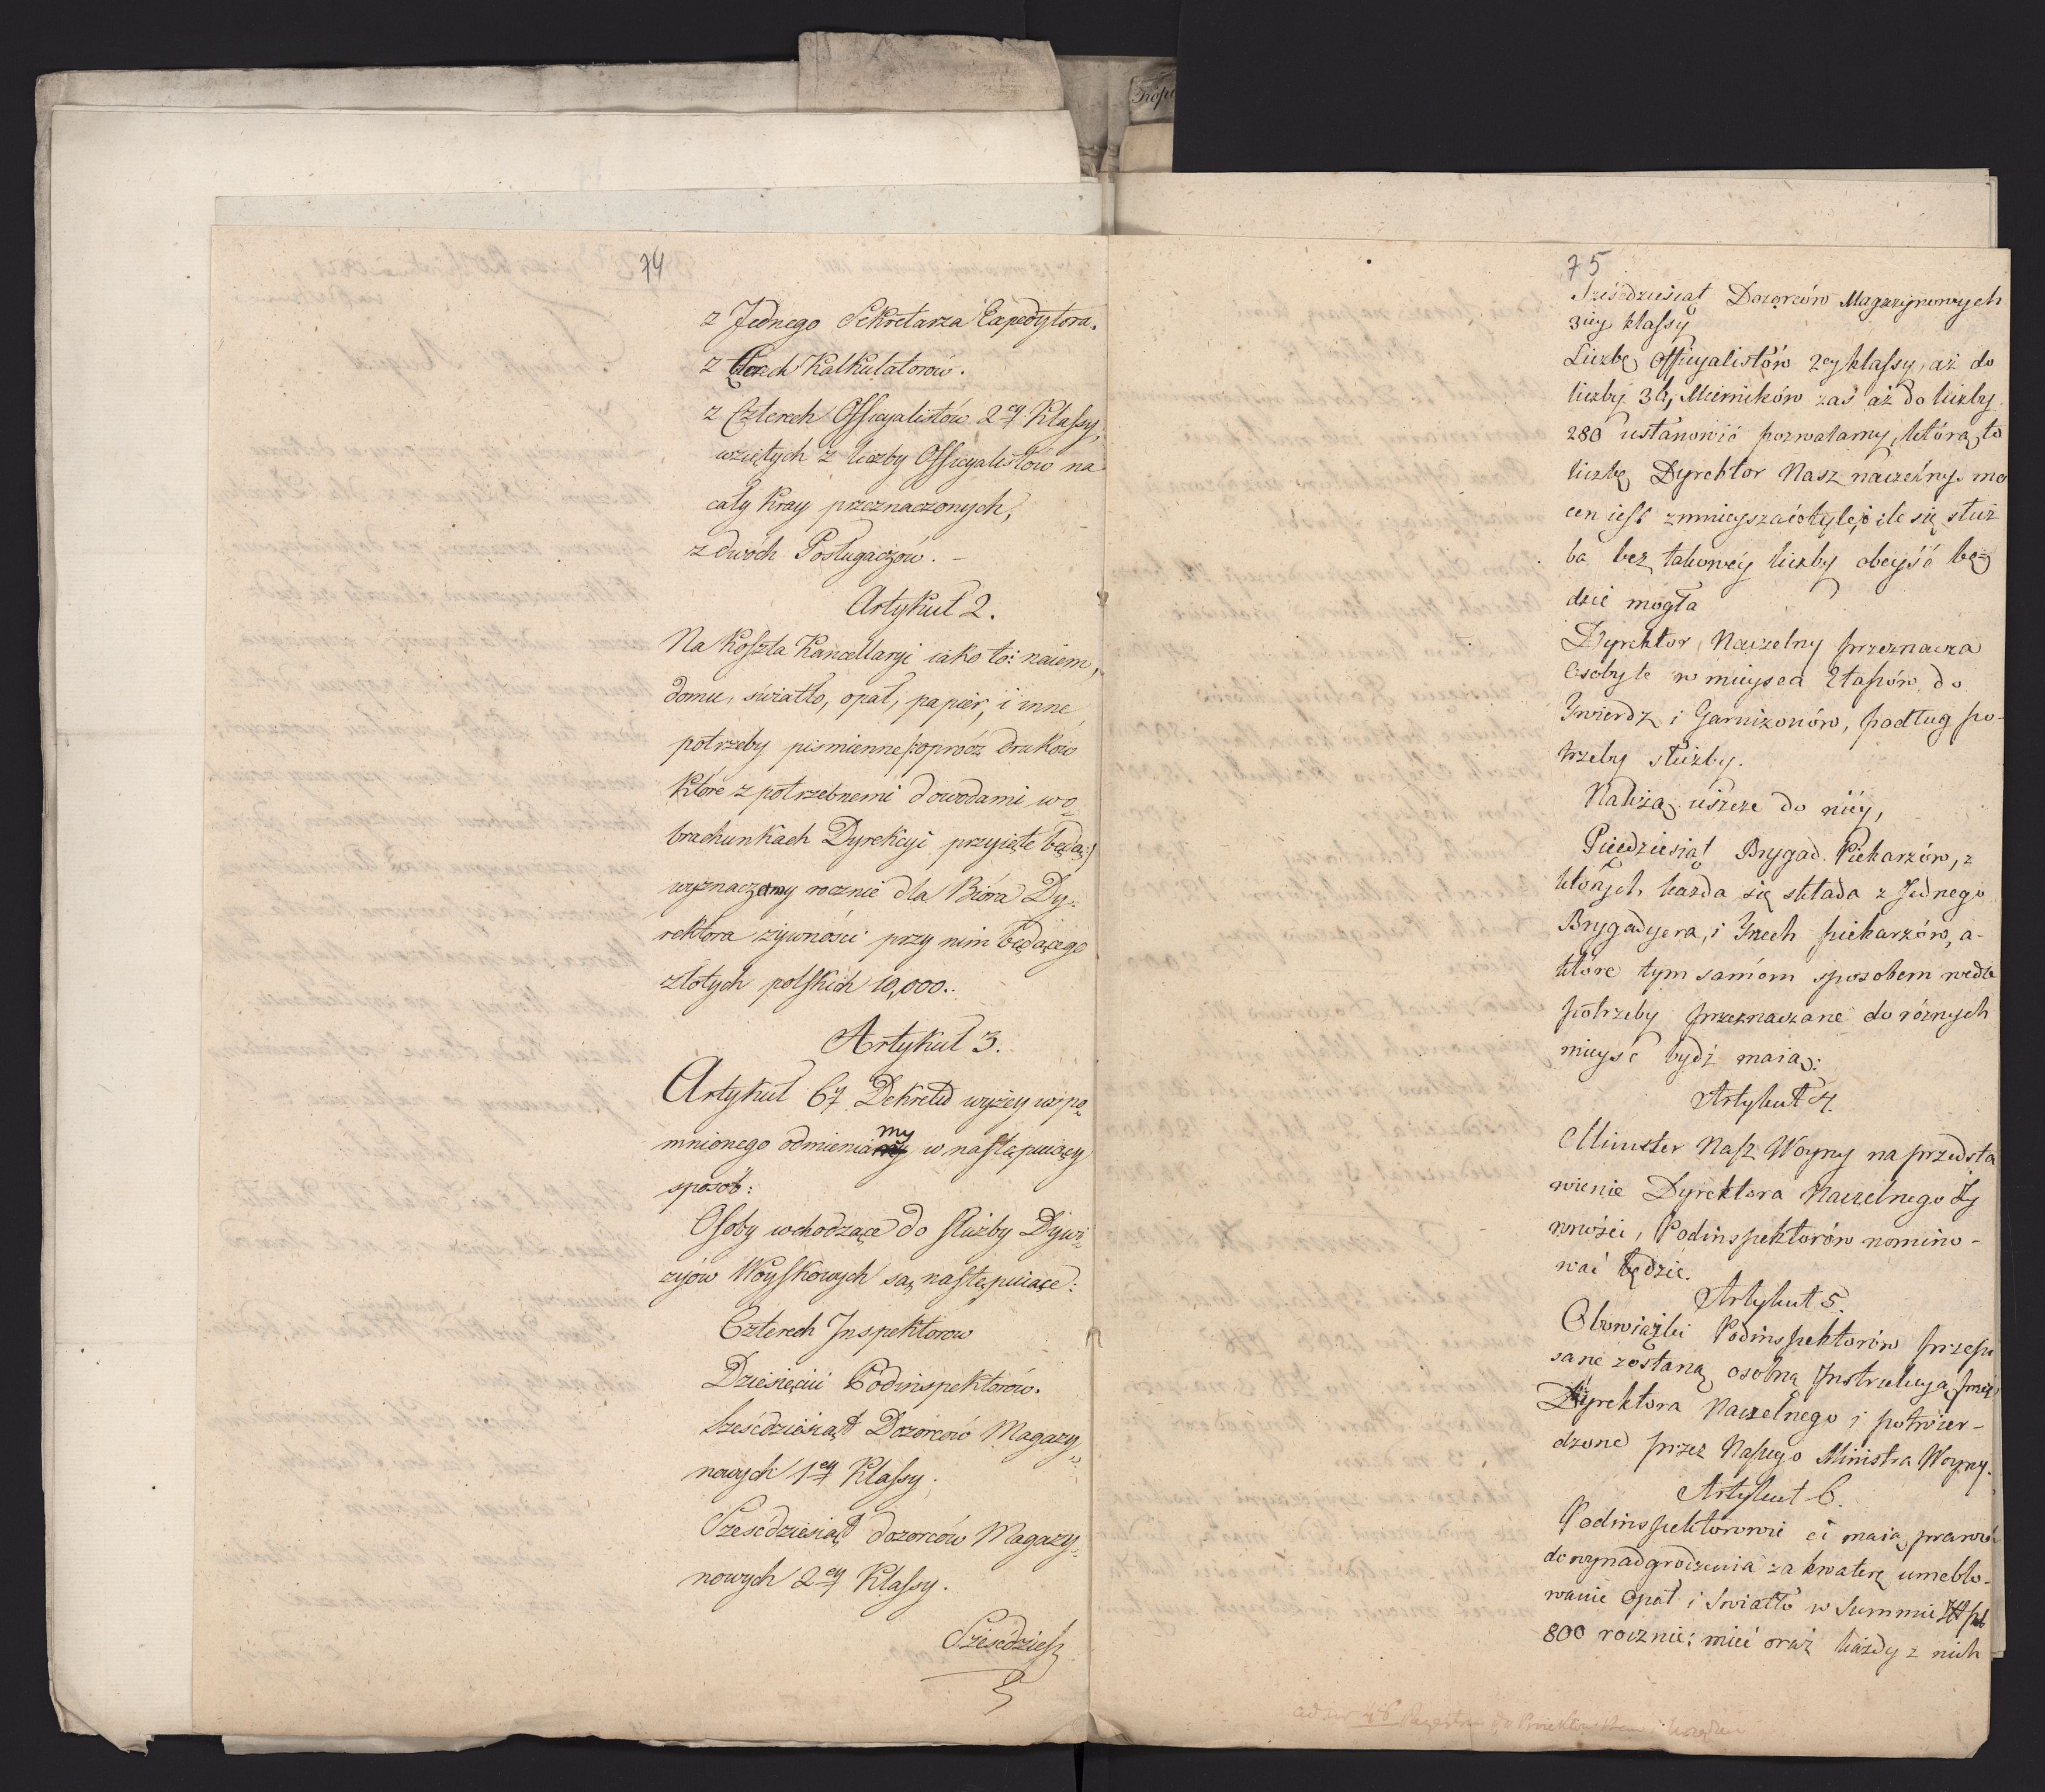 74
z Jednego Sekretarza Expedytora.
z Kalkulatorów.
z Czterech Officyalistów 2ey Klassy,
wziętych z liczby Officyalistów na
cały Kray przeznaczonych,
z dwóch Posługaczów. –
Artykuł 2.
Na Koszta Kancellaryi iako to: naiem,
domu, światło, opał, papier, i inne
potrzeby pismienne /:oprócz druków
które z potrzebnemi dowodami w o„
brachunkach Dyrekcyi przyięte będą:/
wyznaczamy rocznie dla Bióra Dy„
rektora żywności przy nim będącego
złotych polskich 10,000..
Artykuł 3.
Artykuł 67 Dekretu wyżey wspo„
mnionego odmieniamy w następuiący
sposób:
Osoby wchodzące do służby Dywi„
zyiów Woyskowych są następuiące:
Czterech Inspektorow
Dziesięciu Podinspektorów.
Sześćdziesiąt Dozorców Magazy„
nowych 1ey Klassy.
Sześćdziesiąt dozorców Magazy„
nowych 2ey Klassy.
Sześćdziesz
75
Sześćdziesiąt Dozorców Magazynowych
3iey klassy
Liczbę Officyalistów 2ey klassy, aż do
liczby 36, Mierników zaś aż do liczby
280 ustanowić pozwalamy, którą to
liczbę Dyrektor Nasz naczelny mo
cen iest zmnieyszać o tyle, o ile się służ
ba bez takowéy liczby obeyść bę„
dzie mogła
Dyrektor Naczelny przeznacza
Osoby te w mieysca Etapów, do
Twierdz i Garnizonów, podług po-
trzeby służby.
Należą ieszcze do niéy,
Pięćdziesiąt Brygad Piekarzów, z
których każda się składa z Jednego
Brygadyera, i Trzech piekarzów, a-
które tym samém sposobem wedle
potrzeby przeznaczane do róznych
mieysc bydź maią:
Artykuł 4.
Minister Nasz Woyny na przedsta
wienie Dyrektora Naczelnego Ży
wności, Podinspektorów nomino-
wać będzie.
Artykuł 5.
Obowiązki Podinspektorów przepi
sane zostaną osobną Instrukcyą przez
Dyrektora Naczelnego i potwier-
dzone przez Naszego Ministra Woyny.
Artykuł 6.
Podinspektorowie ci maią prawo
do wynadgrodzenia za kwaterę umeblo-
wanie Opał i Światło w Summie Złł pol
800 rocznie; mieć oraz każdy z nich